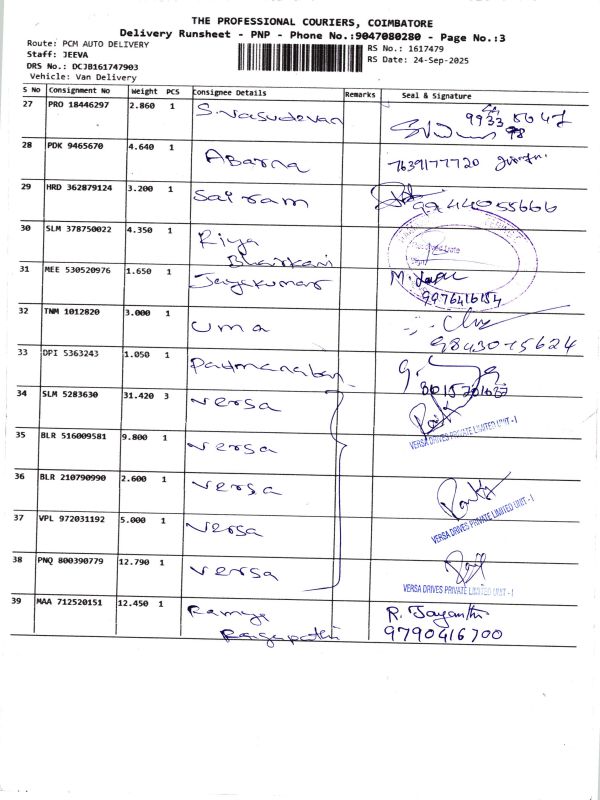 THE PROFESSIONAL COURIERS, COIMBATORE
Delivery Runsheet - PNP - Phone No.:9047080280 - Page No.:3
Route: PCM AUTO DELIVERY
RS No.: 1617479
Staff: JEEVA
RS Date: 24-Sep-2025
DRS No.: DCJB161747903
Vehicle: Van Delivery
S No Consignment No Weight PCS Consignee Details Remarks Seal & Signature
27 PRO 18446297 2.860 1 S.Vasudevan
28 PDK 9465670 4.640 1 Abarna 7639177720
29 HRD 362879124 3.200 1 Sai ram 9944055666
30 SLM 378750022 4.350 1 Riya
Bhaskari
31 MEE 530520976 1.650 1 Jayakumar
9976416154
32 TNM 1012820 3.000 1 uma
9843015624
33 DPI 5363243 1.050 1 Padmanaban
34 SLM 5283630 31.420 3 versa
VERSA DRIVES PRIVATE LIMITED UNIT - I
35 BLR 516009581 9.800 1 versa
36 BLR 210790990 2.600 1 versa
VERSA DRIVES PRIVATE LIMITED UNIT - I
37 VPL 972031192 5.000 1 versa
38 PNQ 800390779 12.790 1 versa
VERSA DRIVES PRIVATE LIMITED UNIT - I
39 MAA 712520151 12.450 1 Ramya R. Jayanthi
Rangapathi 9790416700